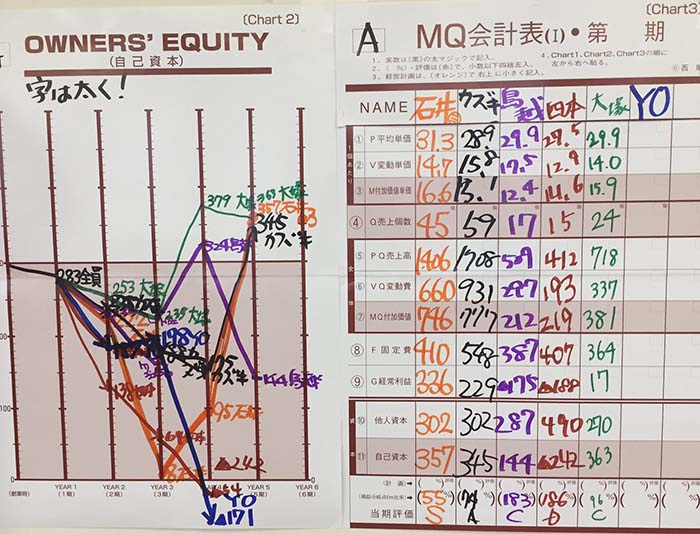 (Chart 2)
OWNERS' EQUITY
(自己資本)
字は太く!
379 大塚
363 大塚
357 石井
345 カズキ
324 鳥越
283 全員
253 大塚
198 YO
95 石井
▲242
▲54
YO
▲171
100
(創業時)
YEAR 1
(1期)
YEAR 2
(2期)
YEAR 3
(3期)
YEAR 4
(4期)
YEAR 5
(5期)
YEAR 6
(6期)
(Chart3)
A MQ会計表(I)・第 期
1.実数は〔黒〕の太マジックで記入。
2.( %)・評価は〔赤〕で、小数以下四捨五入。
3.経営計画は、〔オレンジ〕で右上に小さく記入。
4.Chart1、Chart2、Chart3の順に左から右へ貼る。
NAME 石井 カズキ 鳥越 四本 大塚 YO
① P平均単価 31.3 28.9 29.9 27.5 29.9
② V変動単価 14.7 15.8 17.5 12.9 14.0
③ M付加価値単価 16.6 13.1 12.4 14.6 15.9
④ Q売上個数 45 59 17 15 24
⑤ PQ売上高 1406 1708 509 412 718
⑥ VQ変動費 660 931 297 193 337
⑦ MQ付加価値 746 777 212 219 381
⑧ F固定費 410 548 387 407 364
⑨ G経常利益 336 229 ▲175 ▲188 17
⑩ 他人資本 302 302 287 490 270
⑪ 自己資本 357 345 144 ▲242 363
(計画)
(損益分岐点(f/m)比率) (55%) (%) (183%) (186%) (96%)
当期評価 S A C D C